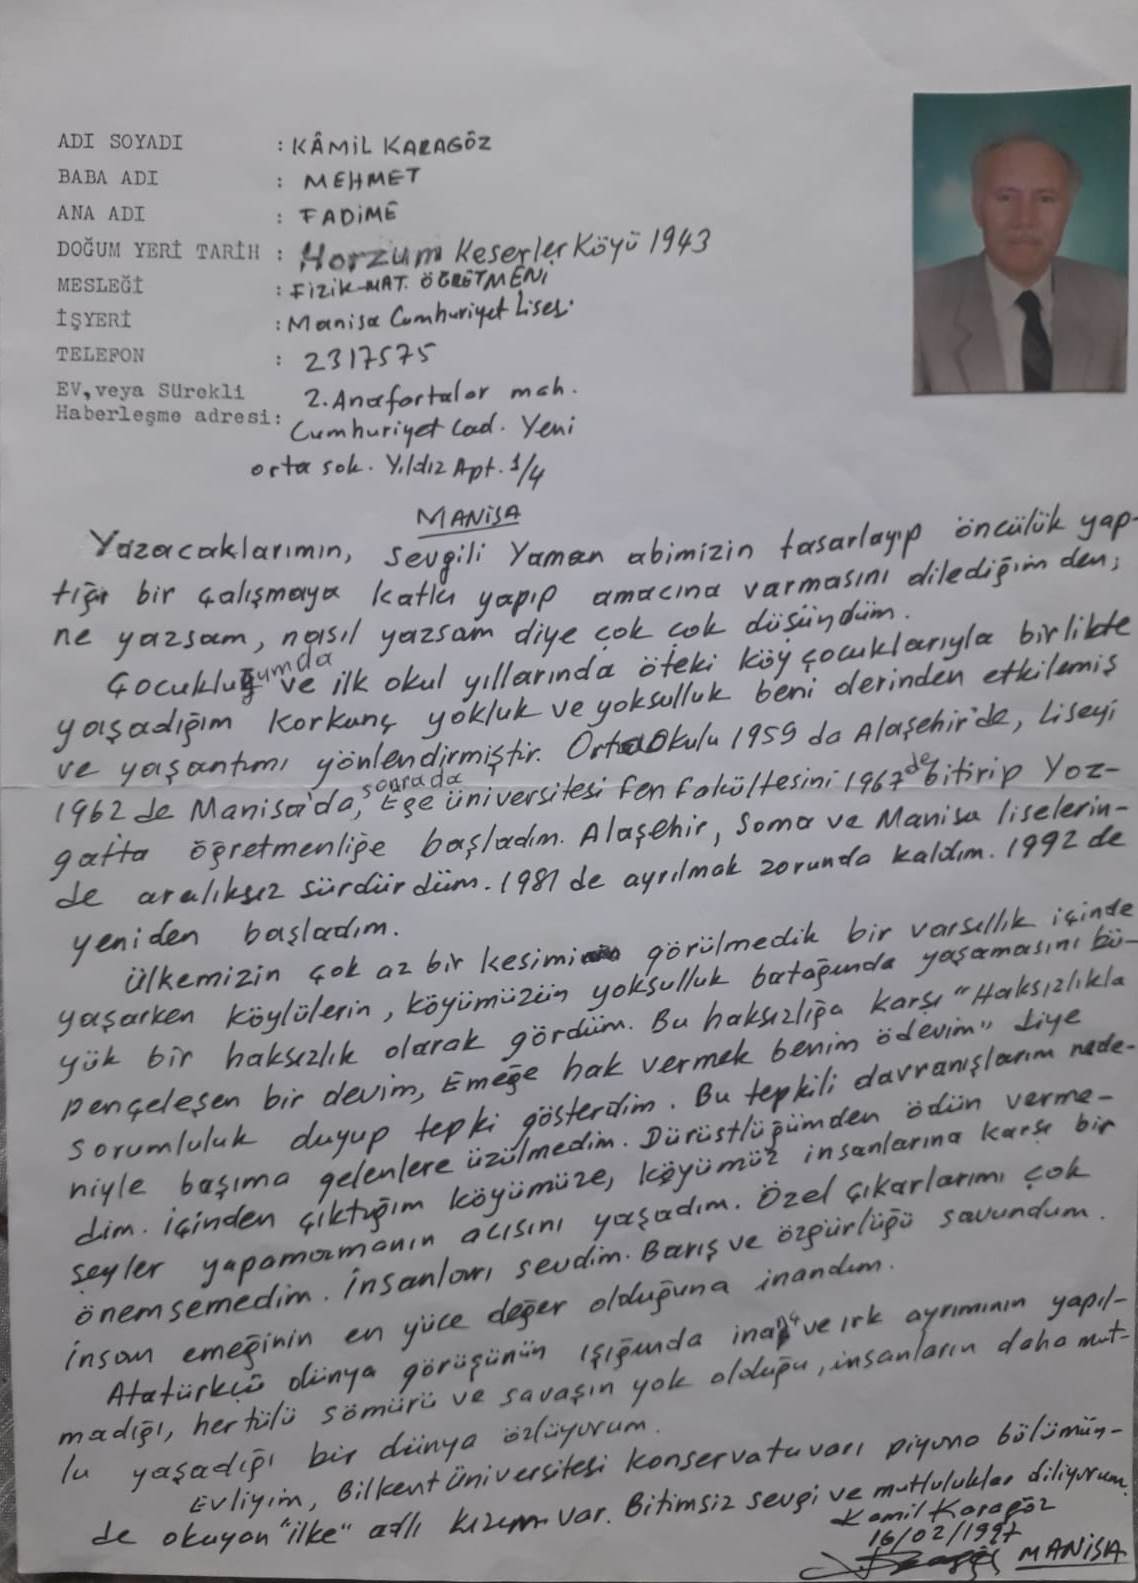 ADI SOYADI : KÂMİL KARAGÖZ
BABA ADI : MEHMET
ANA ADI : FADİME
DOĞUM YERİ TARİH : Horzum Keserler Köyü 1943
MESLEĞİ : Fizik-MAT. ÖĞRETMENİ
İŞYERİ : Manisa Cumhuriyet Lisesi
TELEFON : 2317575
EV, veya Sürekli 2. Anafartalar mah.
Haberleşme adresi: Cumhuriyet Cad. Yeni
orta sok. Yıldız Apt. 1/4
MANİSA
Yazacaklarımın, sevgili Yaman abimizin tasarlayıp öncülük yap-
tığı bir çalışmaya katkı yapıp amacına varmasını dilediğim den;
ne yazsam, nasıl yazsam diye çok çok düşündüm.
Çocukluğumda ve ilk okul yıllarında öteki köy çocuklarıyla birlikte
yaşadığım korkunç yokluk ve yoksulluk beni derinden etkilemiş
ve yaşantımı yönlendirmiştir. Ortaokulu 1959 da Alaşehir'de, Liseyi
1962 de Manisa'da, sonrada Ege üniversitesi fen fakültesini 1967 de bitirip Yoz-
gatta öğretmenliğe başladım. Alaşehir, Soma ve Manisa liselerin-
de aralıksız sürdürdüm. 1981 de ayrılmak zorunda kaldım. 1992 de
yeniden başladım.
Ülkemizin çok az bir kesimi görülmedik bir varsıllık içinde
yaşarken köylülerin, köyümüzün yoksulluk batağında yaşamasını bü-
yük bir haksızlık olarak gördüm. Bu haksızlığa karşı "Haksızlıkla
pençeleşen bir devim, Emeğe hak vermek benim ödevim" diye
sorumluluk duyup tepki gösterdim. Bu tepkili davranışlarım nede-
niyle başıma gelenlere üzülmedim. Dürüstlüğümden ödün verme-
dim. içinden çıktığım köyümüze, köyümüz insanlarına karşı bir
şeyler yapamamanın acısını yaşadım. Özel çıkarlarımı çok
önemsemedim. İnsanları sevdim. Barış ve özgürlüğü savundum.
insan emeğinin en yüce değer olduğuna inandım.
Atatürkçü dünya görüşünün ışığında inanç ve ırk ayrımının yapıl-
madığı, her tülü sömürü ve savaşın yok olduğu, insanların daha mut-
lu yaşadığı bir dünya özlüyorum.
Evliyim, Bilkent Üniversitesi konservatuvarı piyano bölümün-
de okuyan "ilke" adlı kızım var. Bitimsiz sevgi ve mutluluklar diliyorum.
Kamil Karagöz
16/02/1997
MANİSA